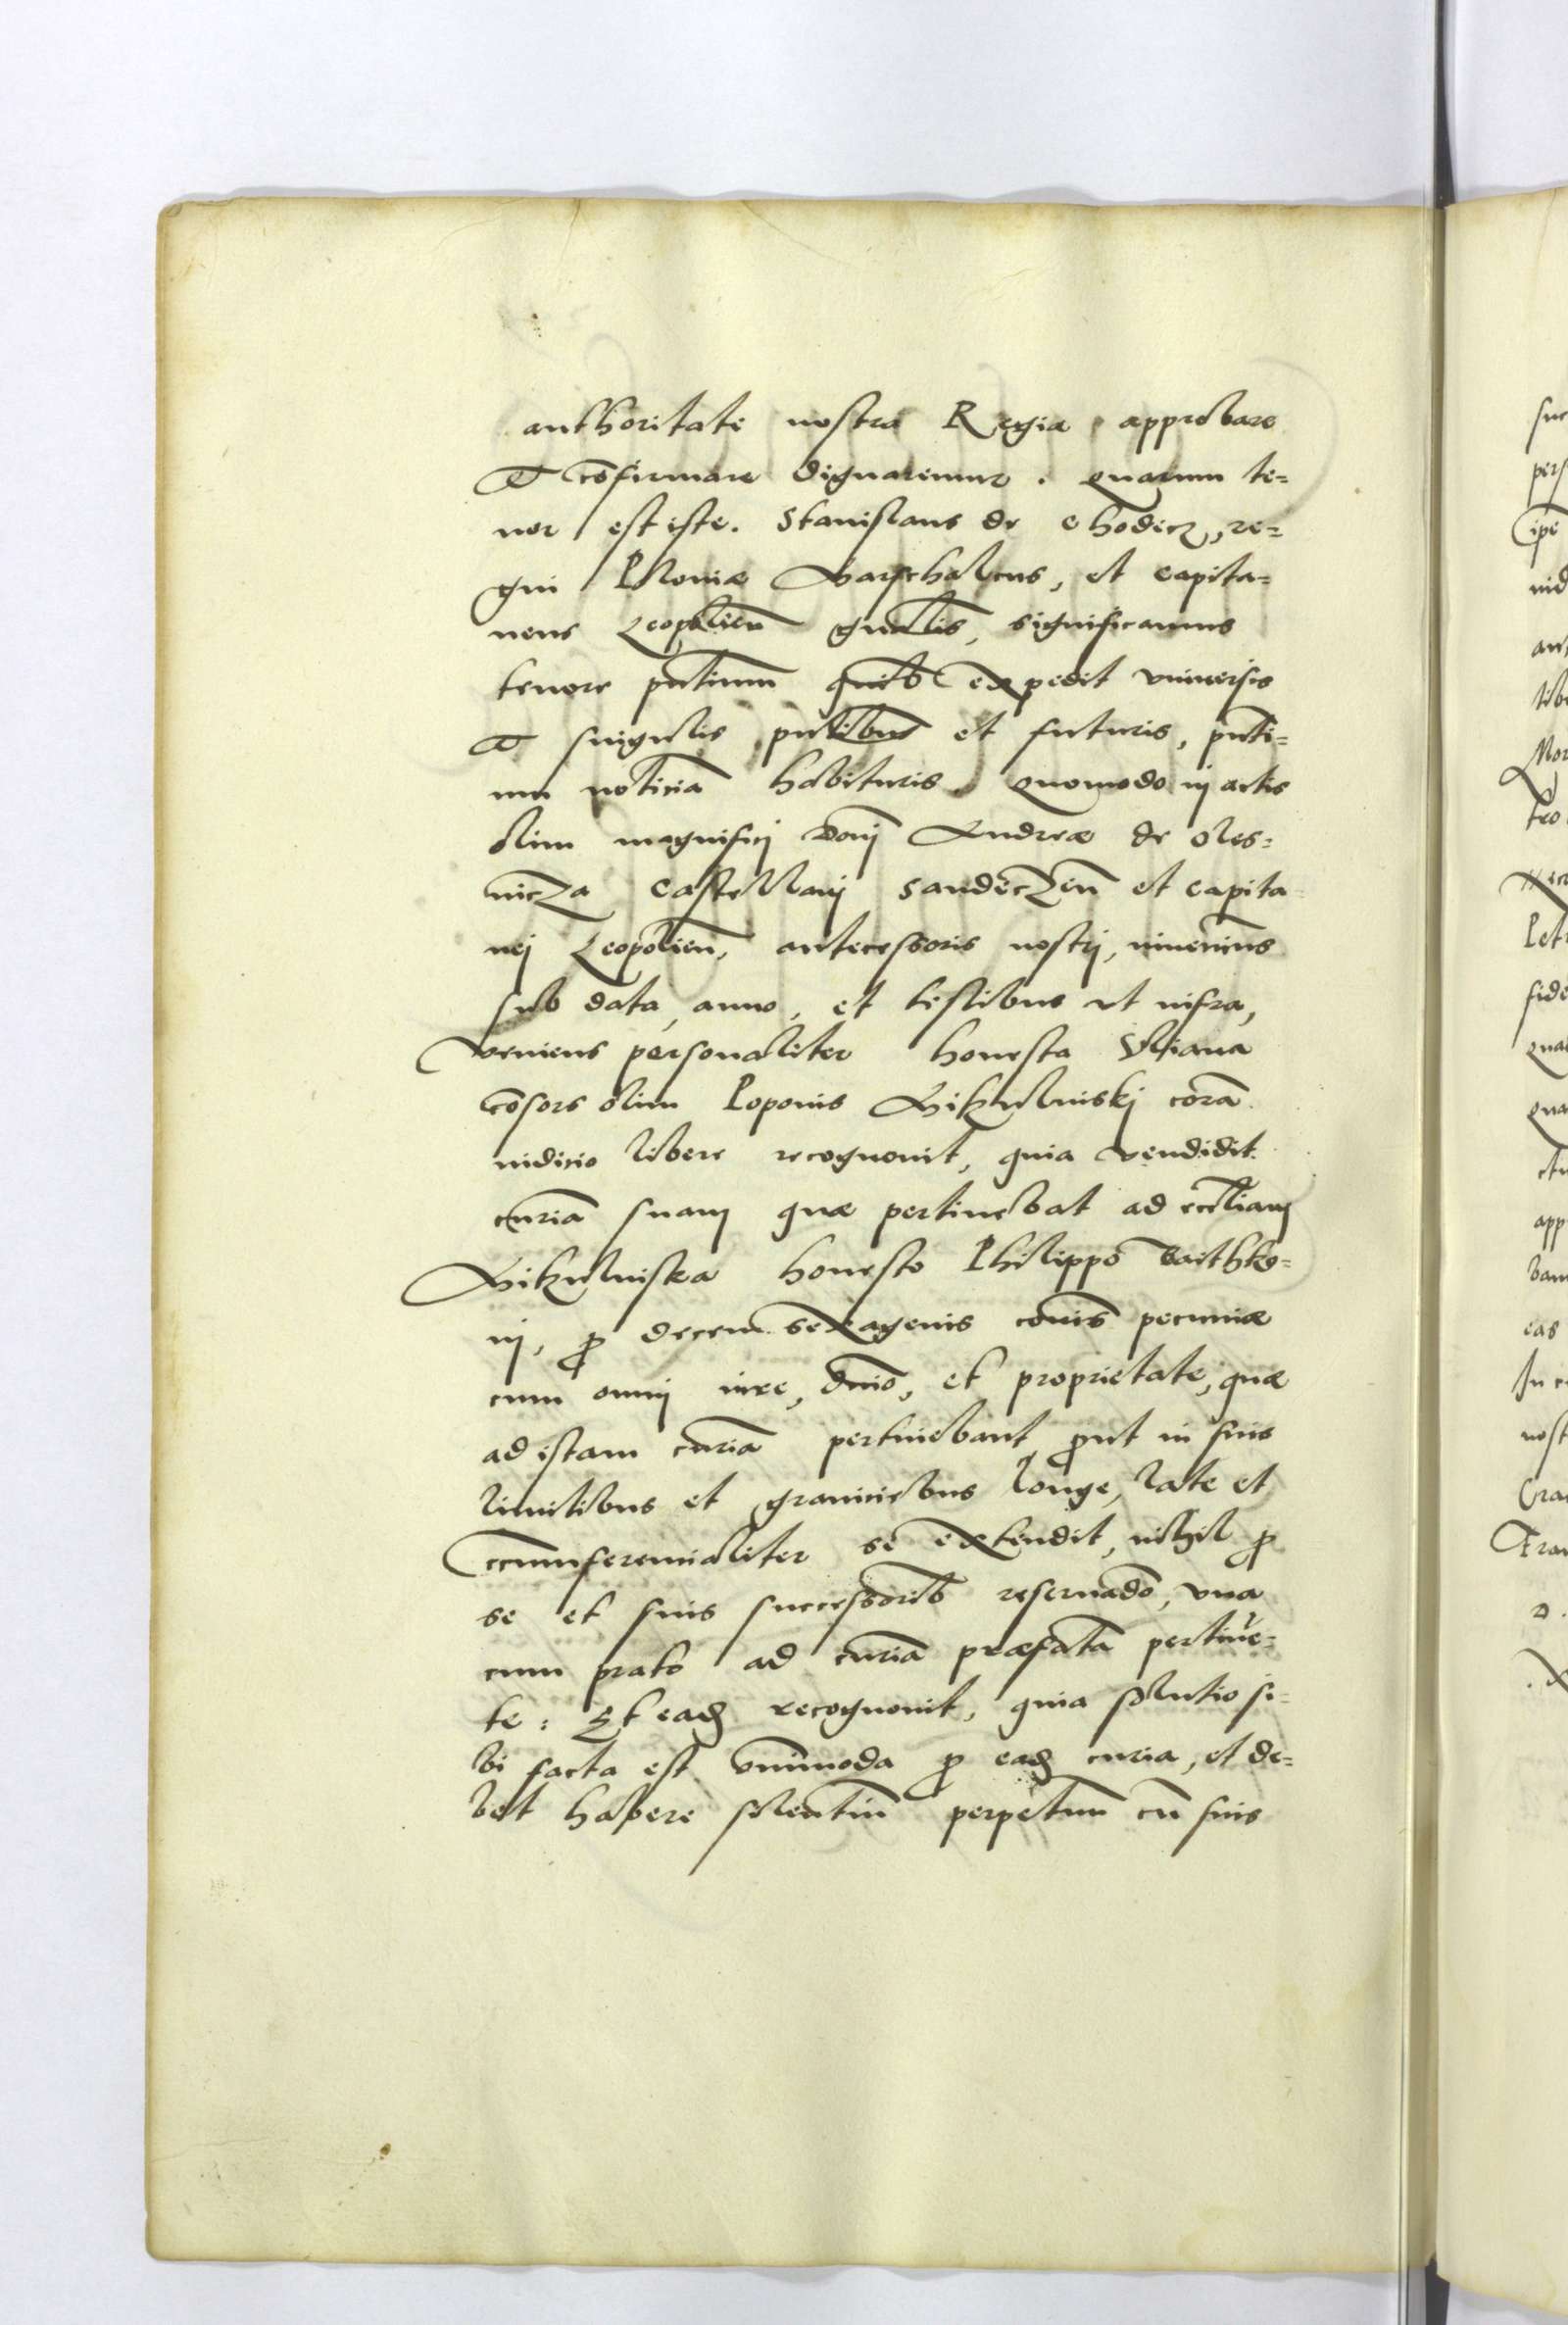 authoritate nostra Regia approbare
et cõfirmare dignaremur. quarum te=
nor est iste. Stanislaus de Chodecz, re=
gni Poloniæ Marschalcus, et capita=
neus Leopolien̄ gnãlis, significamus
tenore pñtium quib expedit vniuersis
et singulis pñtibus et futuris, pñti=
um noticiã habituris. quomodo in actis
olim magnifici Dñi Andreæ de Oles=
nicza Castellani Sandeczen̄ et Capita
nei Leopolien̄, antecessoris nostri, inuenim9
sub data, anno, et testibus vt infra,
Veniens personaliter honesta Vliana
cõsors olim Poponis Mikulniski corã
iudicio libere recognouit, quia vendidit
curiã suam quæ pertinebat ad eccliam
Mikulniska honesto Philippo Vaithko=
ni, p decem sexagenis cõnis pecuniæ
cum omni iure, dñio, et proprietate, quæ
ad istam curiã pertinebant, put in suis
limitibus et graniciebus longe, late et
ccumferencialiter se extendit, nihil p
se et suis successorib reseruãdo, vna
cum prato ad curiã præfatã pertinẽ=
te: Et eadẽ recognouit, quia solutio si=
bi facta est omnimoda p eadẽ curia, et de=
bet habere silentiũ perpetuũ cũ suis